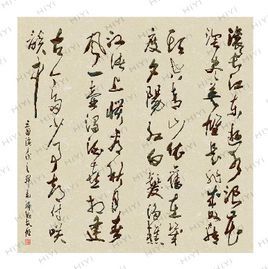 滚长江东逝水浪花
淘尽英雄是非成败转
头空青山依旧在几
度夕阳红白发渔樵
江渚上惯看秋月春
风一壶浊酒喜相逢
古今多少事都付笑
谈中
HIYI